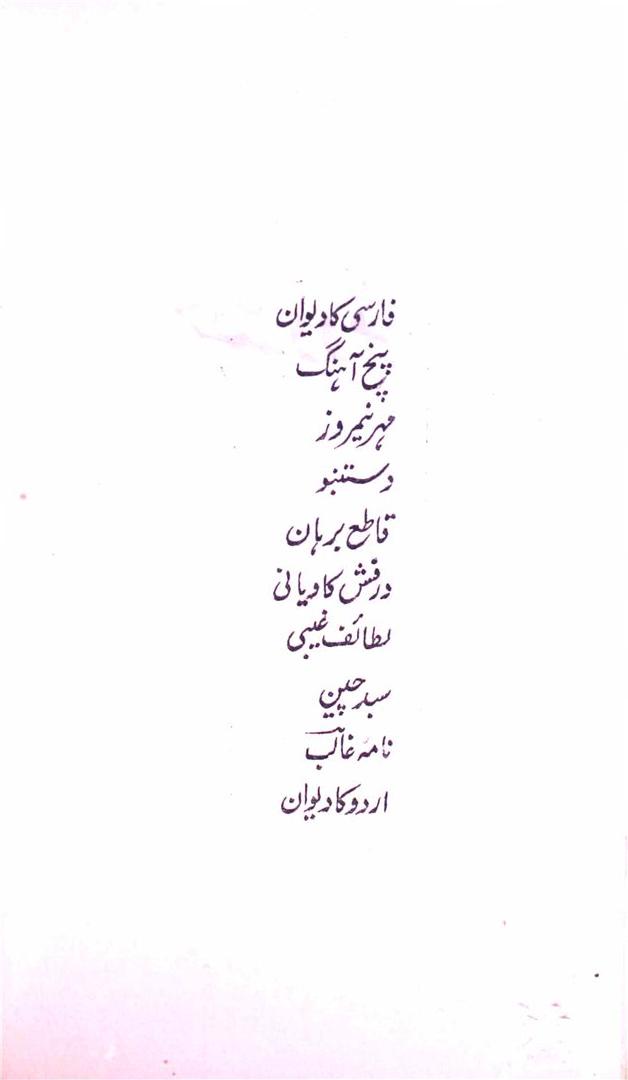 فارسی کا دیوان
پنج آہنگ
مہر نیمروز
دستنبو
قاطع برہان
درفش کاویانی
لطائف غیبی
سبد چین
نامۂ غالبؔ
اردو کا دیوان